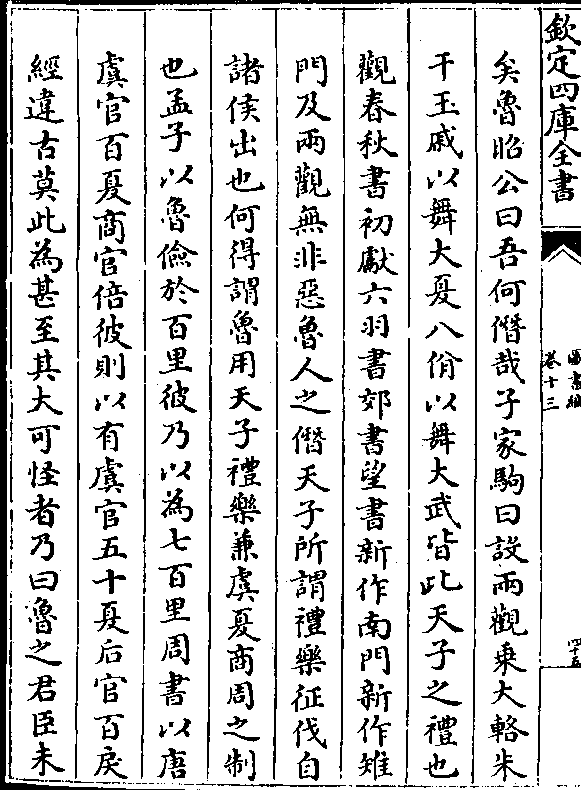 欽定四庫全書
圖書編
卷十三
四十五
矣魯昭公曰吾何僭哉子家駒曰設兩觀乗大輅朱
干玉戚以舞大夏八佾以舞大武皆此天子之禮也
觀春秋書初獻六羽書郊書望書新作南門新作雉
門及兩觀無非惡魯人之僭天子所謂禮樂征伐自
諸侯出也何得謂魯用天子禮樂兼虞夏商周之制
也孟子以魯儉於百里彼乃以為七百里周書以唐
虞官百夏商官倍彼則以有虞官五十夏后官百戾
經違古莫此為甚至其大可怪者乃曰魯之君臣未